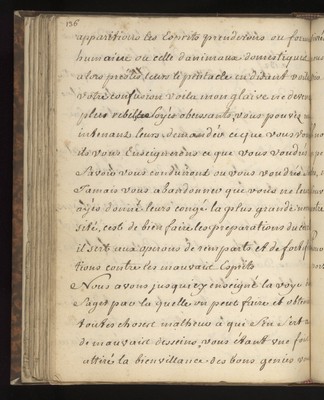 136
apparitions les Esprits prendroivs ou form
humaine ou celle danimaux domestiques
alors monstré leurs le pentacle en disant voilà
votre confusion voila mon glaive ne devené
plus rebelle soyés obeissants vous pouvez m
intenant leurs demander ce que vous vou
ils vous Enseigneront ce que vous voudré
Savoir vous conduiront ou vous voudrés
Jamais vous abandonner que vous ne leur
ayés donné leurs congé. la plus grande
sité, cest de bien faire les preparations du
il sert aux operans de remparts et de fortifi
tions contre les mauvais Esprits
Nous avons jusqu'icy enseigné la voye
Sages par la quelle on peut faire et obten
toutes choses malheur à qui s'en sert
de mauvais desseins, vous étant une fois
attiré la bienvillance des bons genies vo